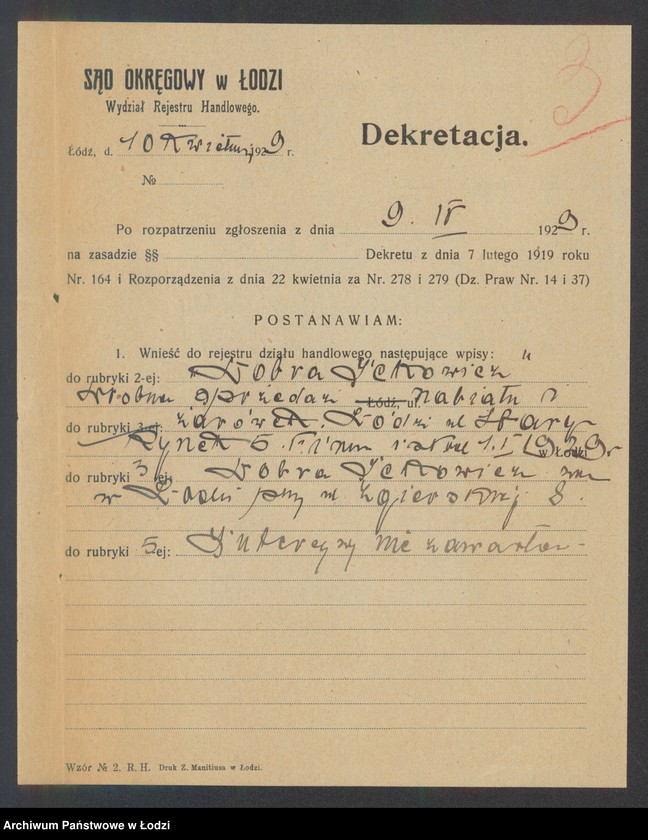 SĄD OKRĘGOWY w ŁODZI
Wydział Rejestru Handlowego.
3
Łódź, d. 10 Kwietnia 1929 r.
Dekretacja.
№
Po rozpatrzeniu zgłoszenia z dnia 9. IV 1929 r.
na zasadzie §§ Dekretu z dnia 7 lutego 1919 roku
Nr. 164 i Rozporządzenia z dnia 22 kwietnia za Nr. 278 i 279 (Dz. Praw Nr. 14 i 37)
POSTANAWIAM:
1. Wnieść do rejestru działu handlowego następujące wpisy:
do rubryki 2-ej: "Dobra Ickowicz"
drobna sprzedaż Łódź, ul. nabiału i
do rubryki 3-ej: żarówek. Łódź ul Stary-
Rynek 5. 1929 r w Łodzi
do rubryki 3 ej: Dobra Ickowicz zam
w Łodzi przy ul Zgierskiej 8.
do rubryki 5 ej: Intercyzy nie zawarła-
Wzór № 2. R. H. Druk Z. Manitiusa w Łodzi.
Archiwum Państwowe w Łodzi